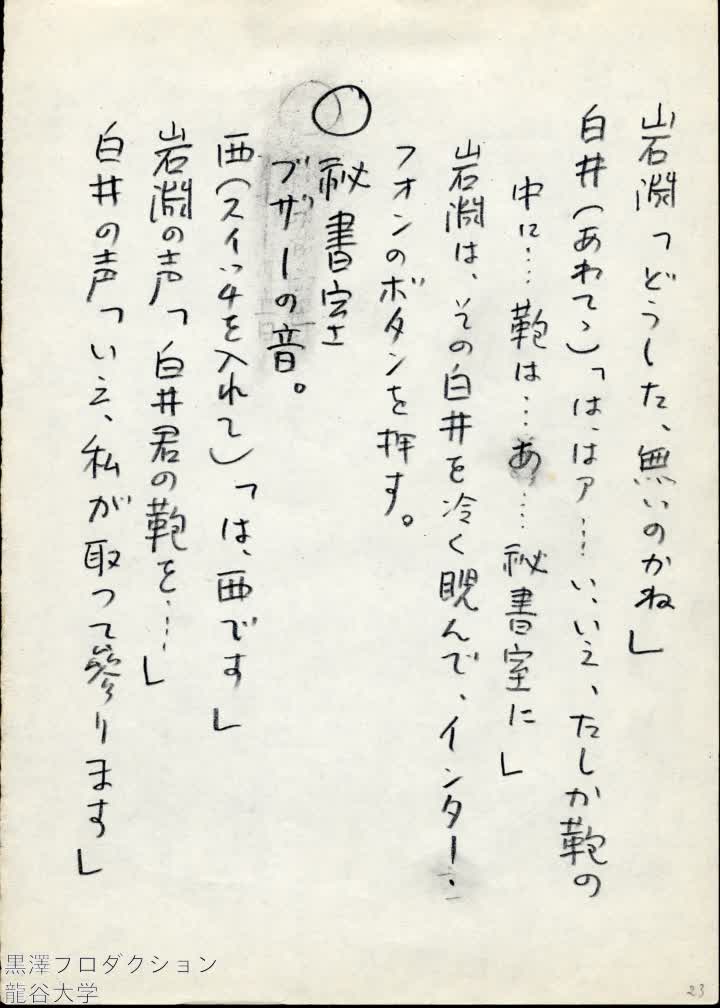 岩淵「どうした、無いのかね」
白井(あわてゝ)「は、はァ…い、いえ、たしか鞄の
中に…鞄は…あ…秘書室に」
岩淵は、その白井を冷く睨んで、インター・
フォンのボタンを押す。
○ 秘書室
ブザーの音。
西(スイッチを入れて)「は、西です」
岩淵の声「白井君の鞄を…」
白井の声「いえ、私が取って参ります」
黒澤プロダクション
龍谷大学
23